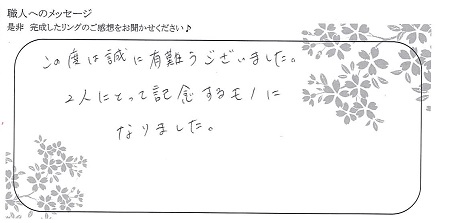 職人へのメッセージ
是非 完成したリングのご感想をお聞かせください♪
この度は誠に有難うございました。
2人にとって記念するモノに
なりました。